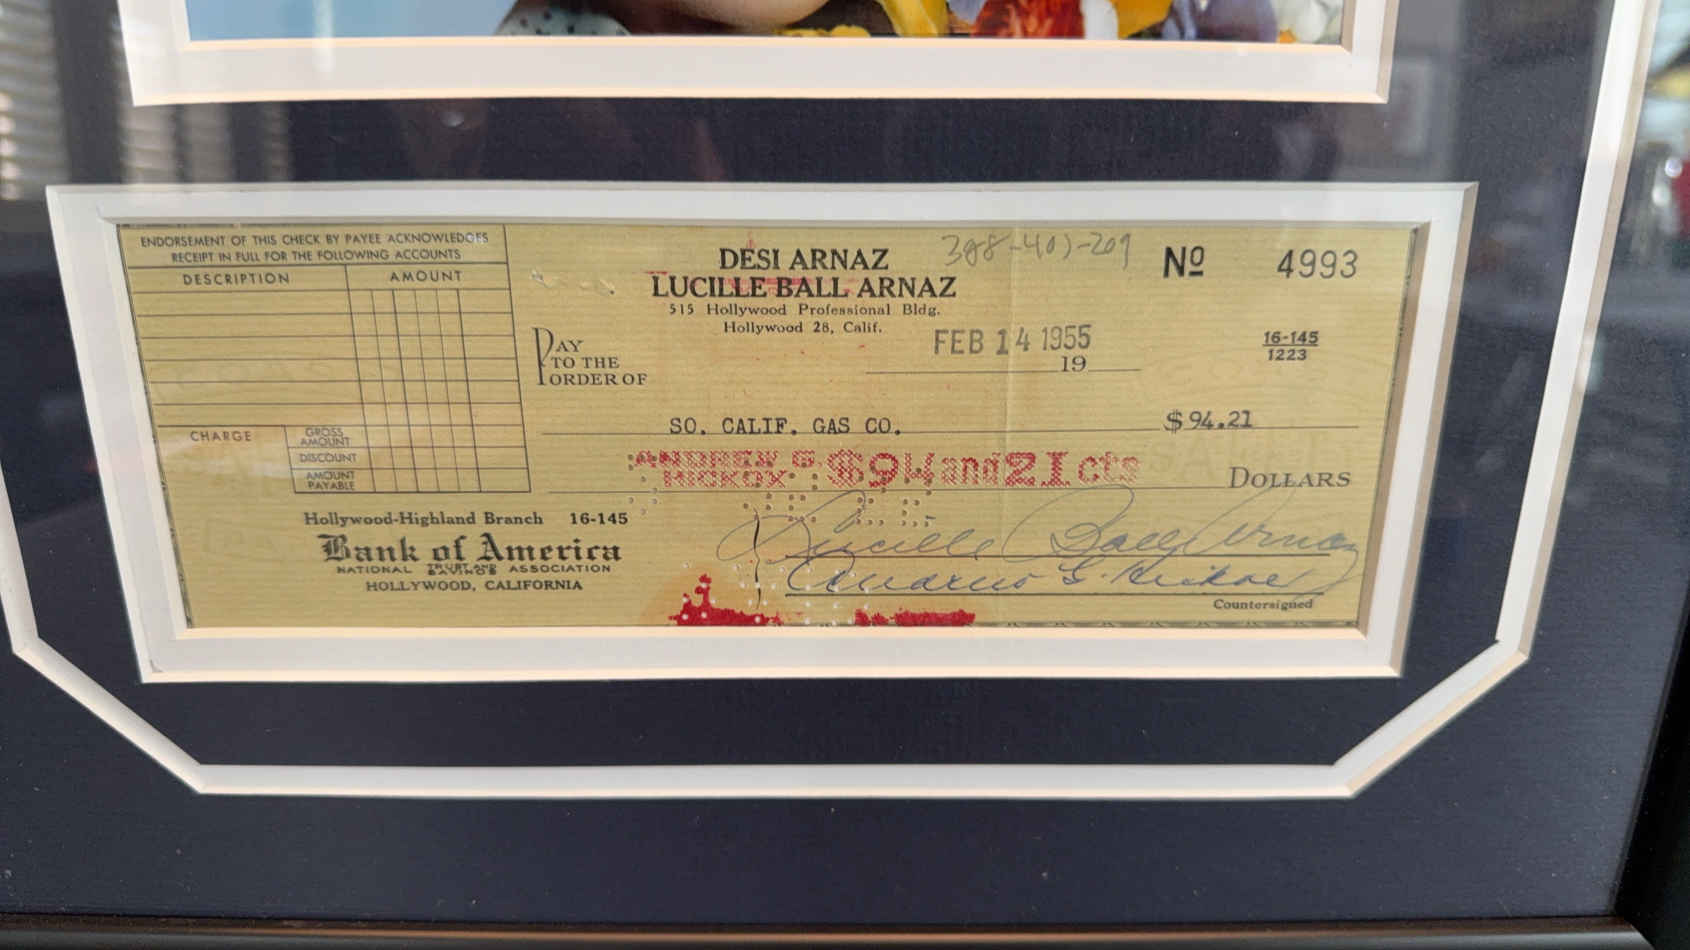 ENDORSEMENT OF THIS CHECK BY PAYEE ACKNOWLEDGES
RECEIPT IN FULL FOR THE FOLLOWING ACCOUNTS
DESCRIPTION AMOUNT
CHARGE
GROSS AMOUNT
DISCOUNT
AMOUNT PAYABLE
DESI ARNAZ
LUCILLE BALL ARNAZ
515 Hollywood Professional Bldg.
Hollywood 28, Calif.
No 4993
FEB 14 1955
19
16-145
1223
PAY
TO THE
ORDER OF
SO. CALIF. GAS CO. $ 94.21
ANDREW G. HICKOX $94 and 21 cts
DOLLARS
Hollywood-Highland Branch 16-145
Bank of America
NATIONAL TRUST AND SAVINGS ASSOCIATION
HOLLYWOOD, CALIFORNIA
Lucille Ball Arnaz
Countersigned